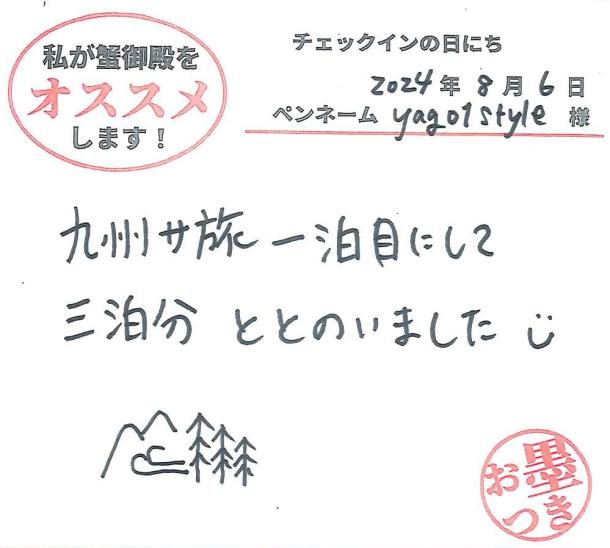 私が蟹御殿を
オススメ
します！
チェックインの日にち
2024年8月6日
ペンネーム yago1style 様
九州サ旅 一泊目にして
三泊分 ととのいました
お墨
つき